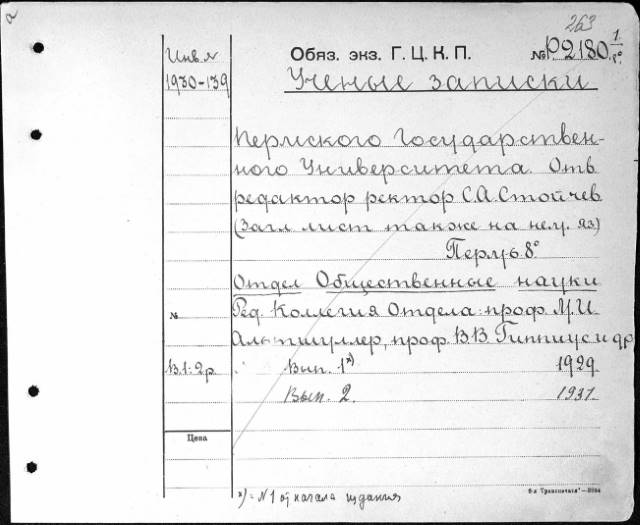 263
Инв. №
1930-139
Обяз. экз. Г. Ц. К. П.
№ Р2180 1/8°
Ученые записки
Пермского Государствен-
ного Университета. Отв
редактор ректор С.А. Стойчев
(Загл лист также на нем. яз)
Пермь. 8°
Отдел Общественные науки
№ Ред. Коллегия Отдела: проф. М.И.
Альтшуллер, проф. В.В. Гиппиус и др
В.1: 2р. Вып. 1 х) 1929.
Вып. 2. 1931.
Цена
х) = N 1 от начала издания
6-я Транспечать — 3094